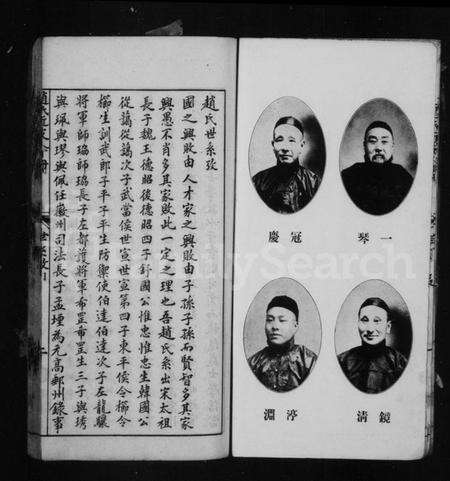 趙氏世系攷
國之興敗由人才家之興敗由子孫子孫而賢智多其家
興愚不肖多其家敗此一定之理也吾趙氏系出宋太祖
長子魏王德昭後德昭四子舒國公惟忠惟忠生韓國公
從藹從藹次子武當侯世宣世宣第四子東平侯令櫛令
櫛生訓武郎子平子平生防禦使伯達伯達次子左龍驤
將軍師瑙師瑙長子左都護將軍希罡希罡生三子與琇
與珮與璆與佩任徽州司法長子孟堙為元高郵州錄事
一琴
冠慶
鏡清
渟淵
FamilySearch